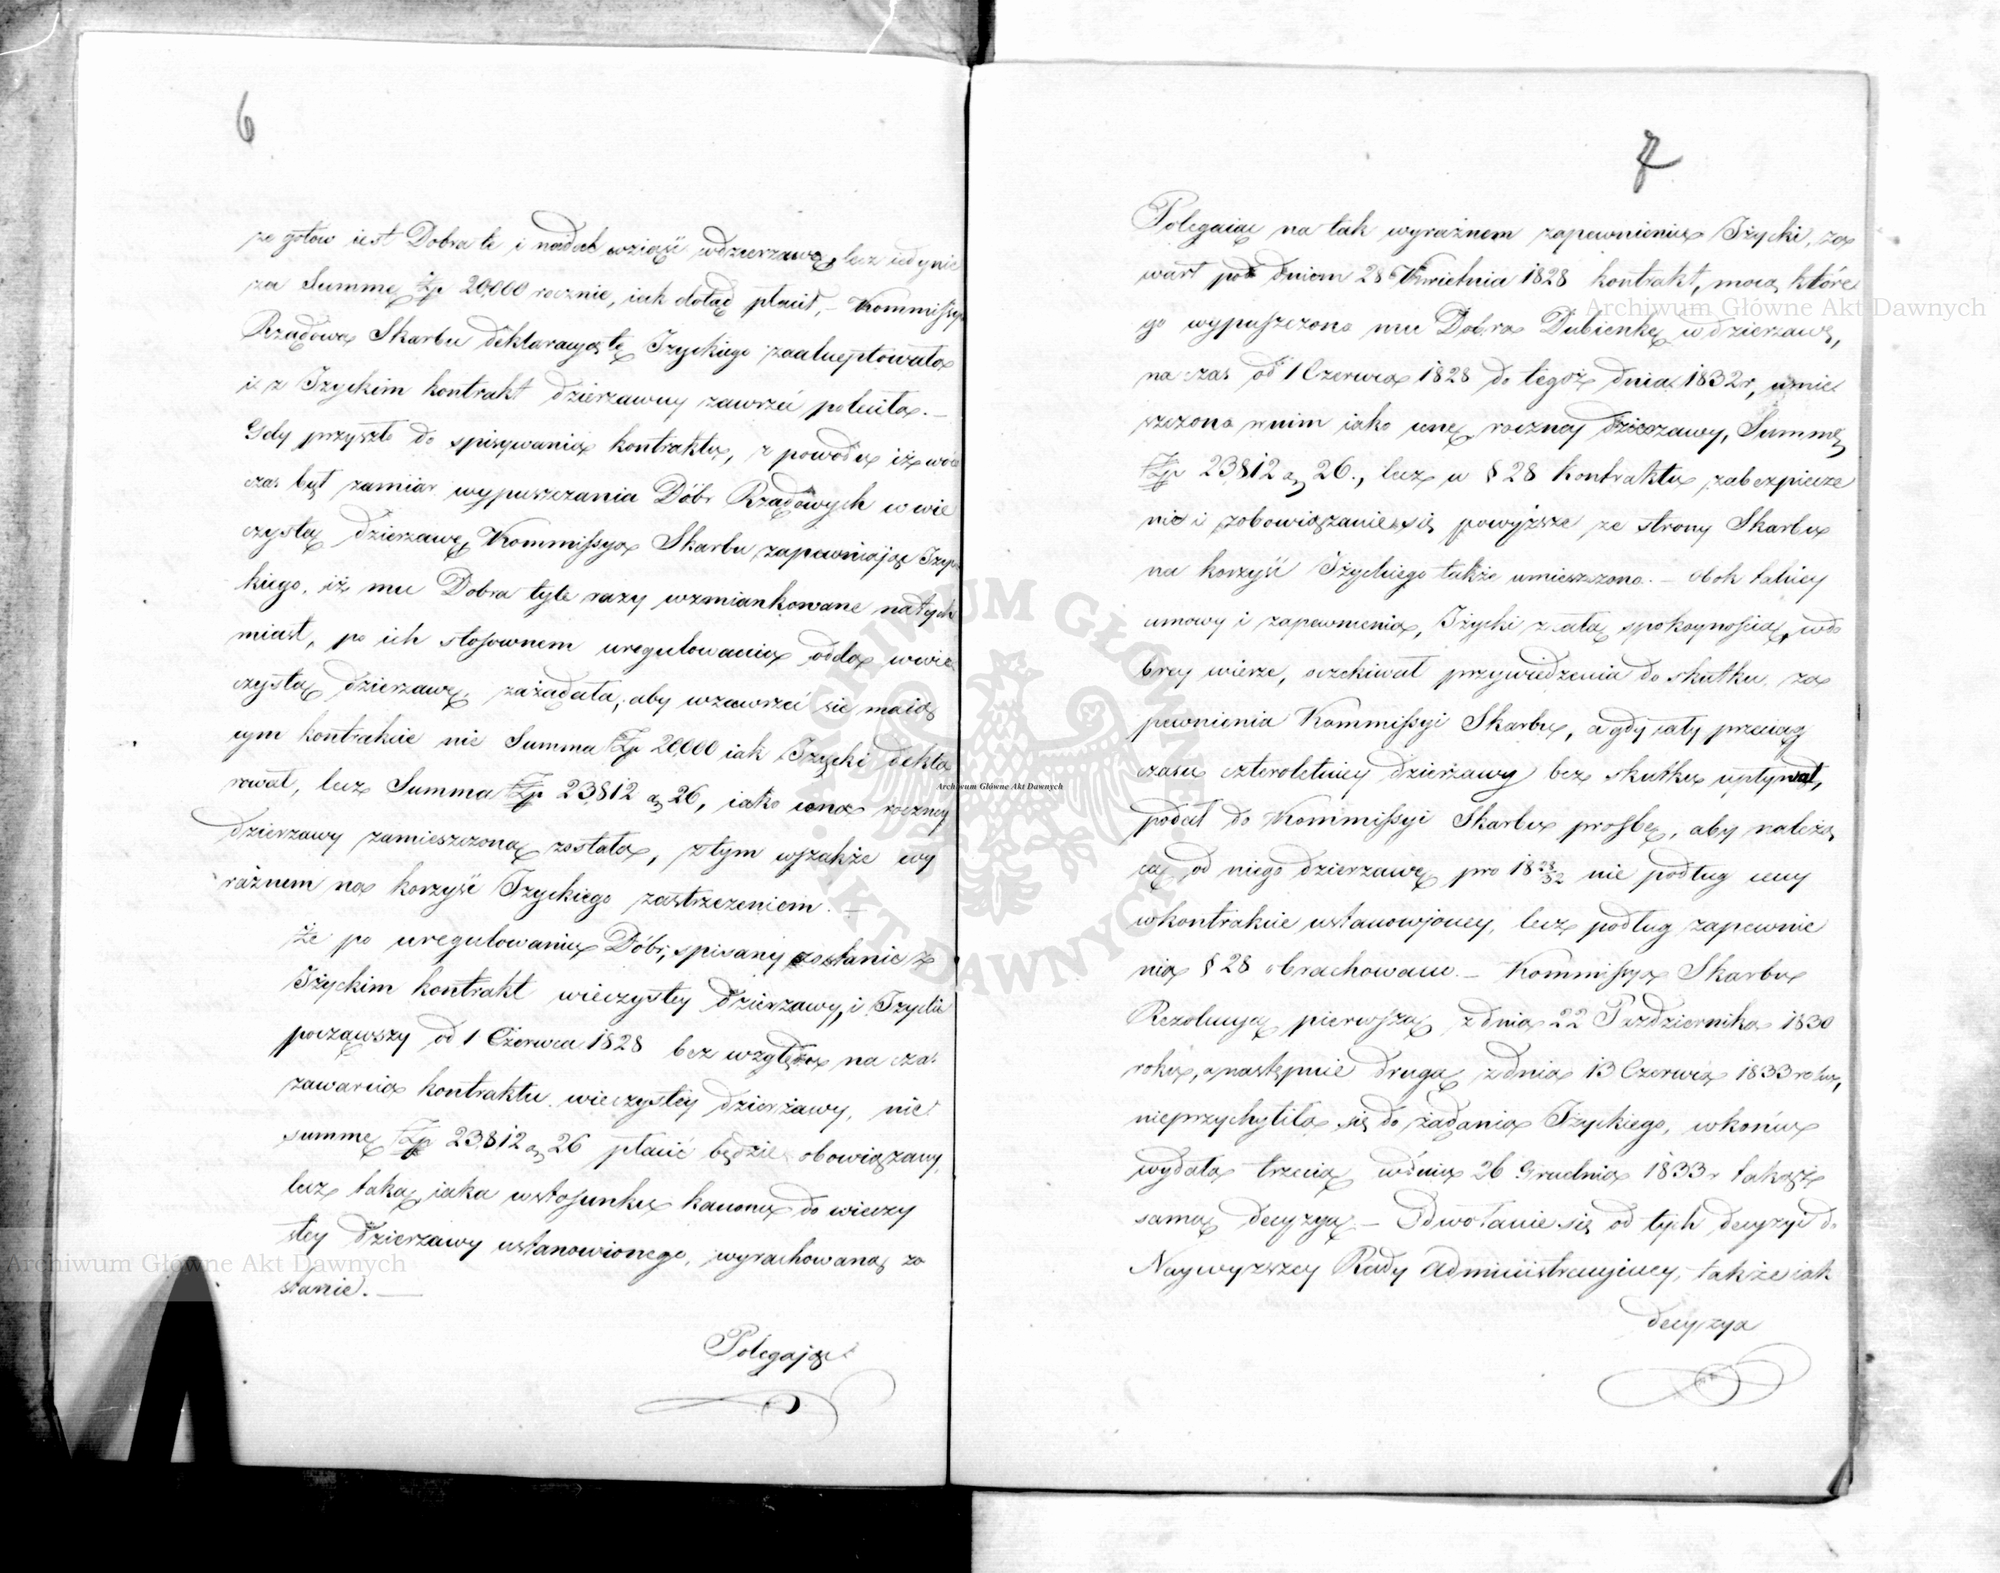 6
że gotow iest Dobra te i nadal wziąść w dzierzawę, lecz iedynie
za Summę Złp 20,000 rocznie, iak dotąd płacił, – Kommissya
Rządowa Skarbu deklaracyą tę Iżyckiego zaakceptowała
i z Iżyckim kontrakt dzierzawny zawrzeć poleciła. –
Gdy przyszło do spisywania kontraktu, z powodu iż wów
czas był zamiar wypuszczania Dóbr Rządowych w wie
czystą dzierzawę, Kommissya Skarbu zapewniając Iżyc
kiego, iż mu Dobra tyle razy wzmiankowane natych
miast, po ich stosownem uregulowaniu odda w wie
czystą dzierzawę, zażądała, aby w zawrzeć się maią
cym kontrakcie nie Summa Złp 20,000 iak Iżycki dekla
rował, lecz Summa Złp 23,812 g 26, iako cena roczney
dzierzawy zamieszczoną została, z tym wszakże wy
raźnem na korzyść Iżyckiego zastrzeżeniem. –
że po uregulowaniu Dóbr, spisany zostanie z
Iżyckim kontrakt wieczystey dzierzawy, i Iżycki
począwszy od 1 Czerwca 1828 bez względu na czas
zawarcia kontraktu wieczystey dzierżawy, nie
summę Złp 23,812 g 26 płacić będzie obowiązany,
lecz taką, iaka w stosunku kanonu do wieczy
stey dzierzawy ustanowionego, wyrachowaną zo
stanie. –
Polegając
7
Polegaiąc na tak wyraźnem zapewnieniu Iżycki, za
warł pod dniem 28 Kwietnia 1828 kontrakt, mocą które
go wypuszczono mu Dobra Dubienkę w dzierzawę,
na czas od 1 Czerwca 1828 do tegoż dnia 1832 r, umie
szczono w nim iako cenę roczney dzierzawy, Summę
Złp 23,812 g 26., lecz w § 28 kontraktu zabezpiecze
nie i zobowiązanie się powyższe ze strony Skarbu
na korzyść Iżyckiego także umieszczono. – Obok takiey
umowy i zapewnienia, Iżycki z całą spokoynością, w do
brey wierze, oczekiwał przywiedzenia do skutku za
pewnienia Kommissyi Skarbu, a gdy cały przeciąg
czasu czteroletniey dzierżawy bez skutku upłynął,
podał do Kommissyi Skarbu prośbę, aby należą
cą od niego dzierzawę pro 18 28/32 nie podług ceny
w kontrakcie ustanowioney, lecz podług zapewnie
nia § 28 obrachowano. – Kommissya Skarbu
Rezolucyą pierwszą z dnia 22 Października 1830
roku, a następnie drugą z dnia 13 Czerwca 1833 roku,
nieprzychyliła się do żądania Iżyckiego, w końcu
wydała trzecią w dniu 26 Grudnia 1833 r takąż
samą decyzyę. – Odwołanie się od tych decyzyi do
Naywyższey Rady Administracyiney, także iak
decyzya
Archiwum Główne Akt Dawnych
Archiwum Główne Akt Dawnych
Archiwum Główne Akt Dawnych
ARCHIWUM GŁÓWNE • AKT DAWNYCH •